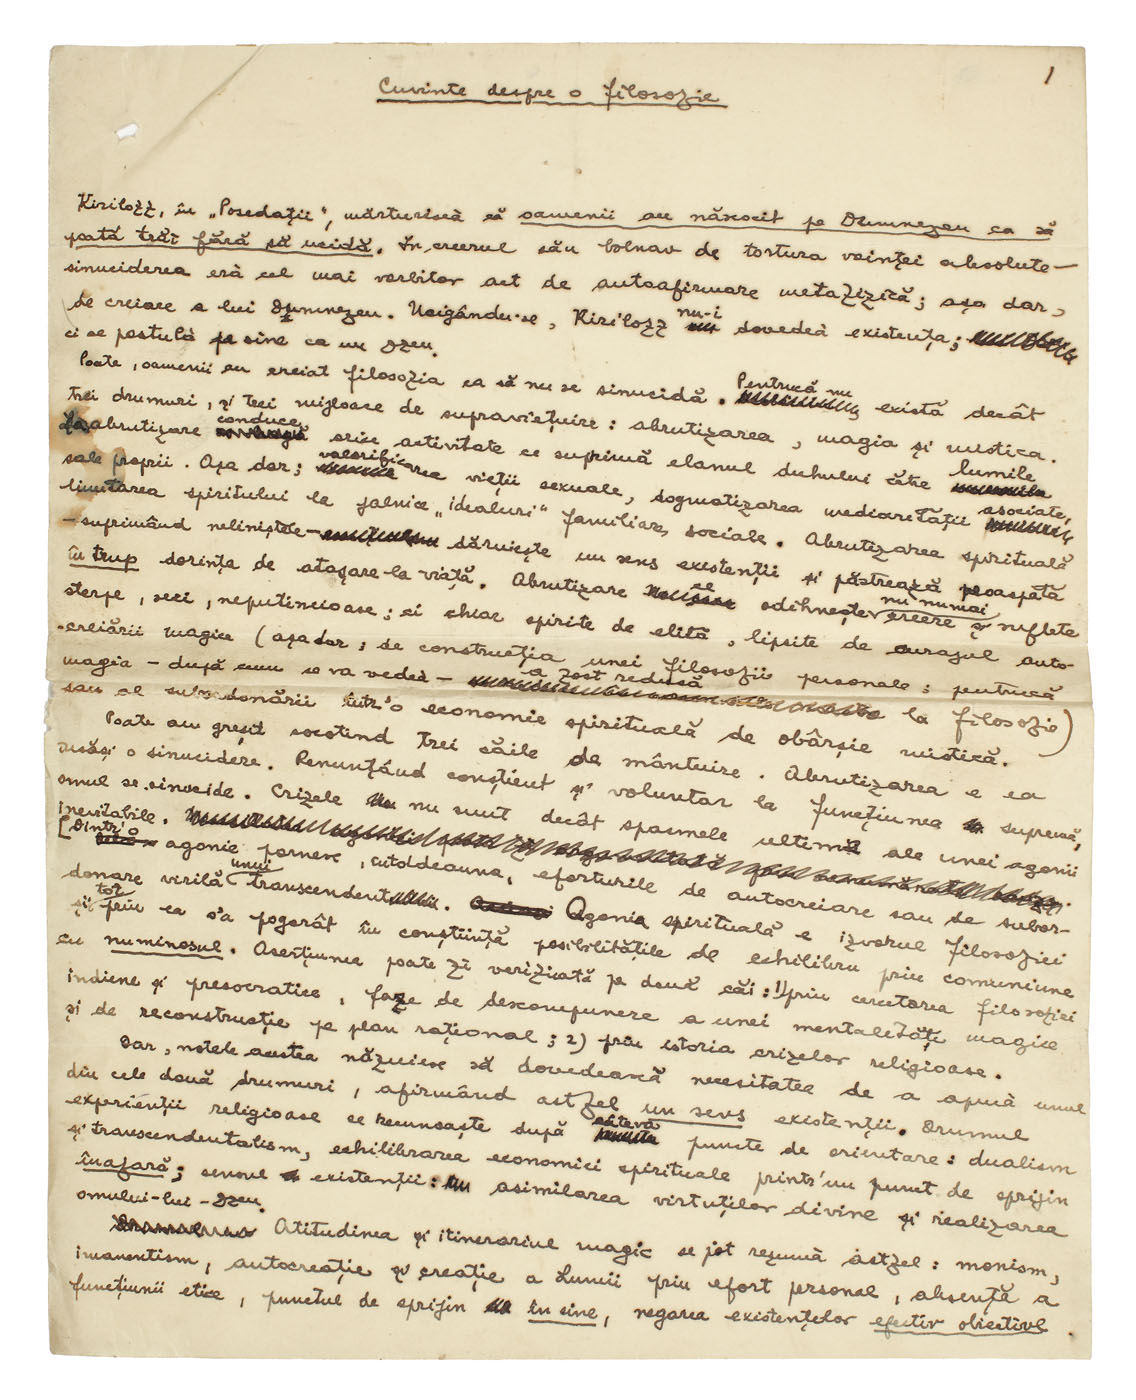 1
Cuvinte despre o filosofie
Kiriloff, în „Posedații", mărturiseà că oamenii au născocit pe Dumnezeu ca să
poată trăi fără să ucidă. În creerul său bolnav de tortura voinței absolute —
sinuciderea erà cel mai vorbitor act de autoafirmare metafizică; așa dar,
de creiare a lui Dumnezeu. Ucigându-se, Kiriloff nu-i dovedeà existența;
ci se postulà pe sine ca un Dzeu.
Poate, oamenii au creiat filosofia ca să nu se sinucidă. Pentrucă nu există decât
trei drumuri, și trei mijloace de supraviețuire: abrutizarea, magia și mistica.
La abrutizare conduce orice activitate ce suprimă elanul duhului către lumile
sale proprii. Așa dar; valorificarea vieții sexuale, dogmatizarea mediocrității asociate,
limitarea spiritului la jalnice „idealuri" familiare, sociale. Abrutizarea spirituală
— suprimând neliniștele — dăruiește un sens existenții și păstrează proaspătă
în trup dorința de atașare la viață. Abrutizare ce odihnește nu numai creere și suflete
sterpe, seci, neputincioase; ci chiar spirite de elită, lipsite de curajul auto-
creiării magice (așa dar; de construcția unei filosofii personale; pentrucă
magia — după cum se va vedeà — a fost redusă la filosofie)
sau al subordonării într'o economie spirituală de obârșie mistică.
Poate au greșit socotind trei căile de mântuire. Abrutizarea e ea
însăși o sinucidere. Renunțând conștient și voluntar la funcțiunea supremă,
omul se sinucide. Crizele nu sunt decât spasmele ultime ale unei agonii
inevitabile.
[Dintr'o agonie pornesc, întotdeauna, eforturile de autocreiare sau de subor-
donare virilă unui transcendent. Agonia spirituală e izvorul filosofiei
și tot prin ea s'a pogorât în conștiință posibilitățile de echilibru prin comuniune
cu numinosul. Aserțiunea poate fi verificată pe două căi: 1) prin cercetarea filosofiei
indiene și presocratice, faze de descompunere a unei mentalități magice
și de reconstrucție pe plan rațional; 2) prin istoria crizelor religioase.
Dar, notele acestea năzuiesc să dovedească necesitatea de a apucà unul
din cele două drumuri, afirmând astfel un sens existenții. Drumul
experienții religioase se recunoaște după câteva puncte de orientare: dualism
și transcendentalism, echilibrarea economiei spirituale printr'un punct de sprijin
în afară; sensul existenții: asimilarea virtuților divine și realizarea
omului-lui-Dzeu.
Atitudinea și itinerariul magic se pot rezumà astfel: monism,
imanentism, autocreație și creație a Lumii prin efort personal, absență a
funcțiunii etice, punctul de sprijin în sine, negarea existențelor efectiv obiective.